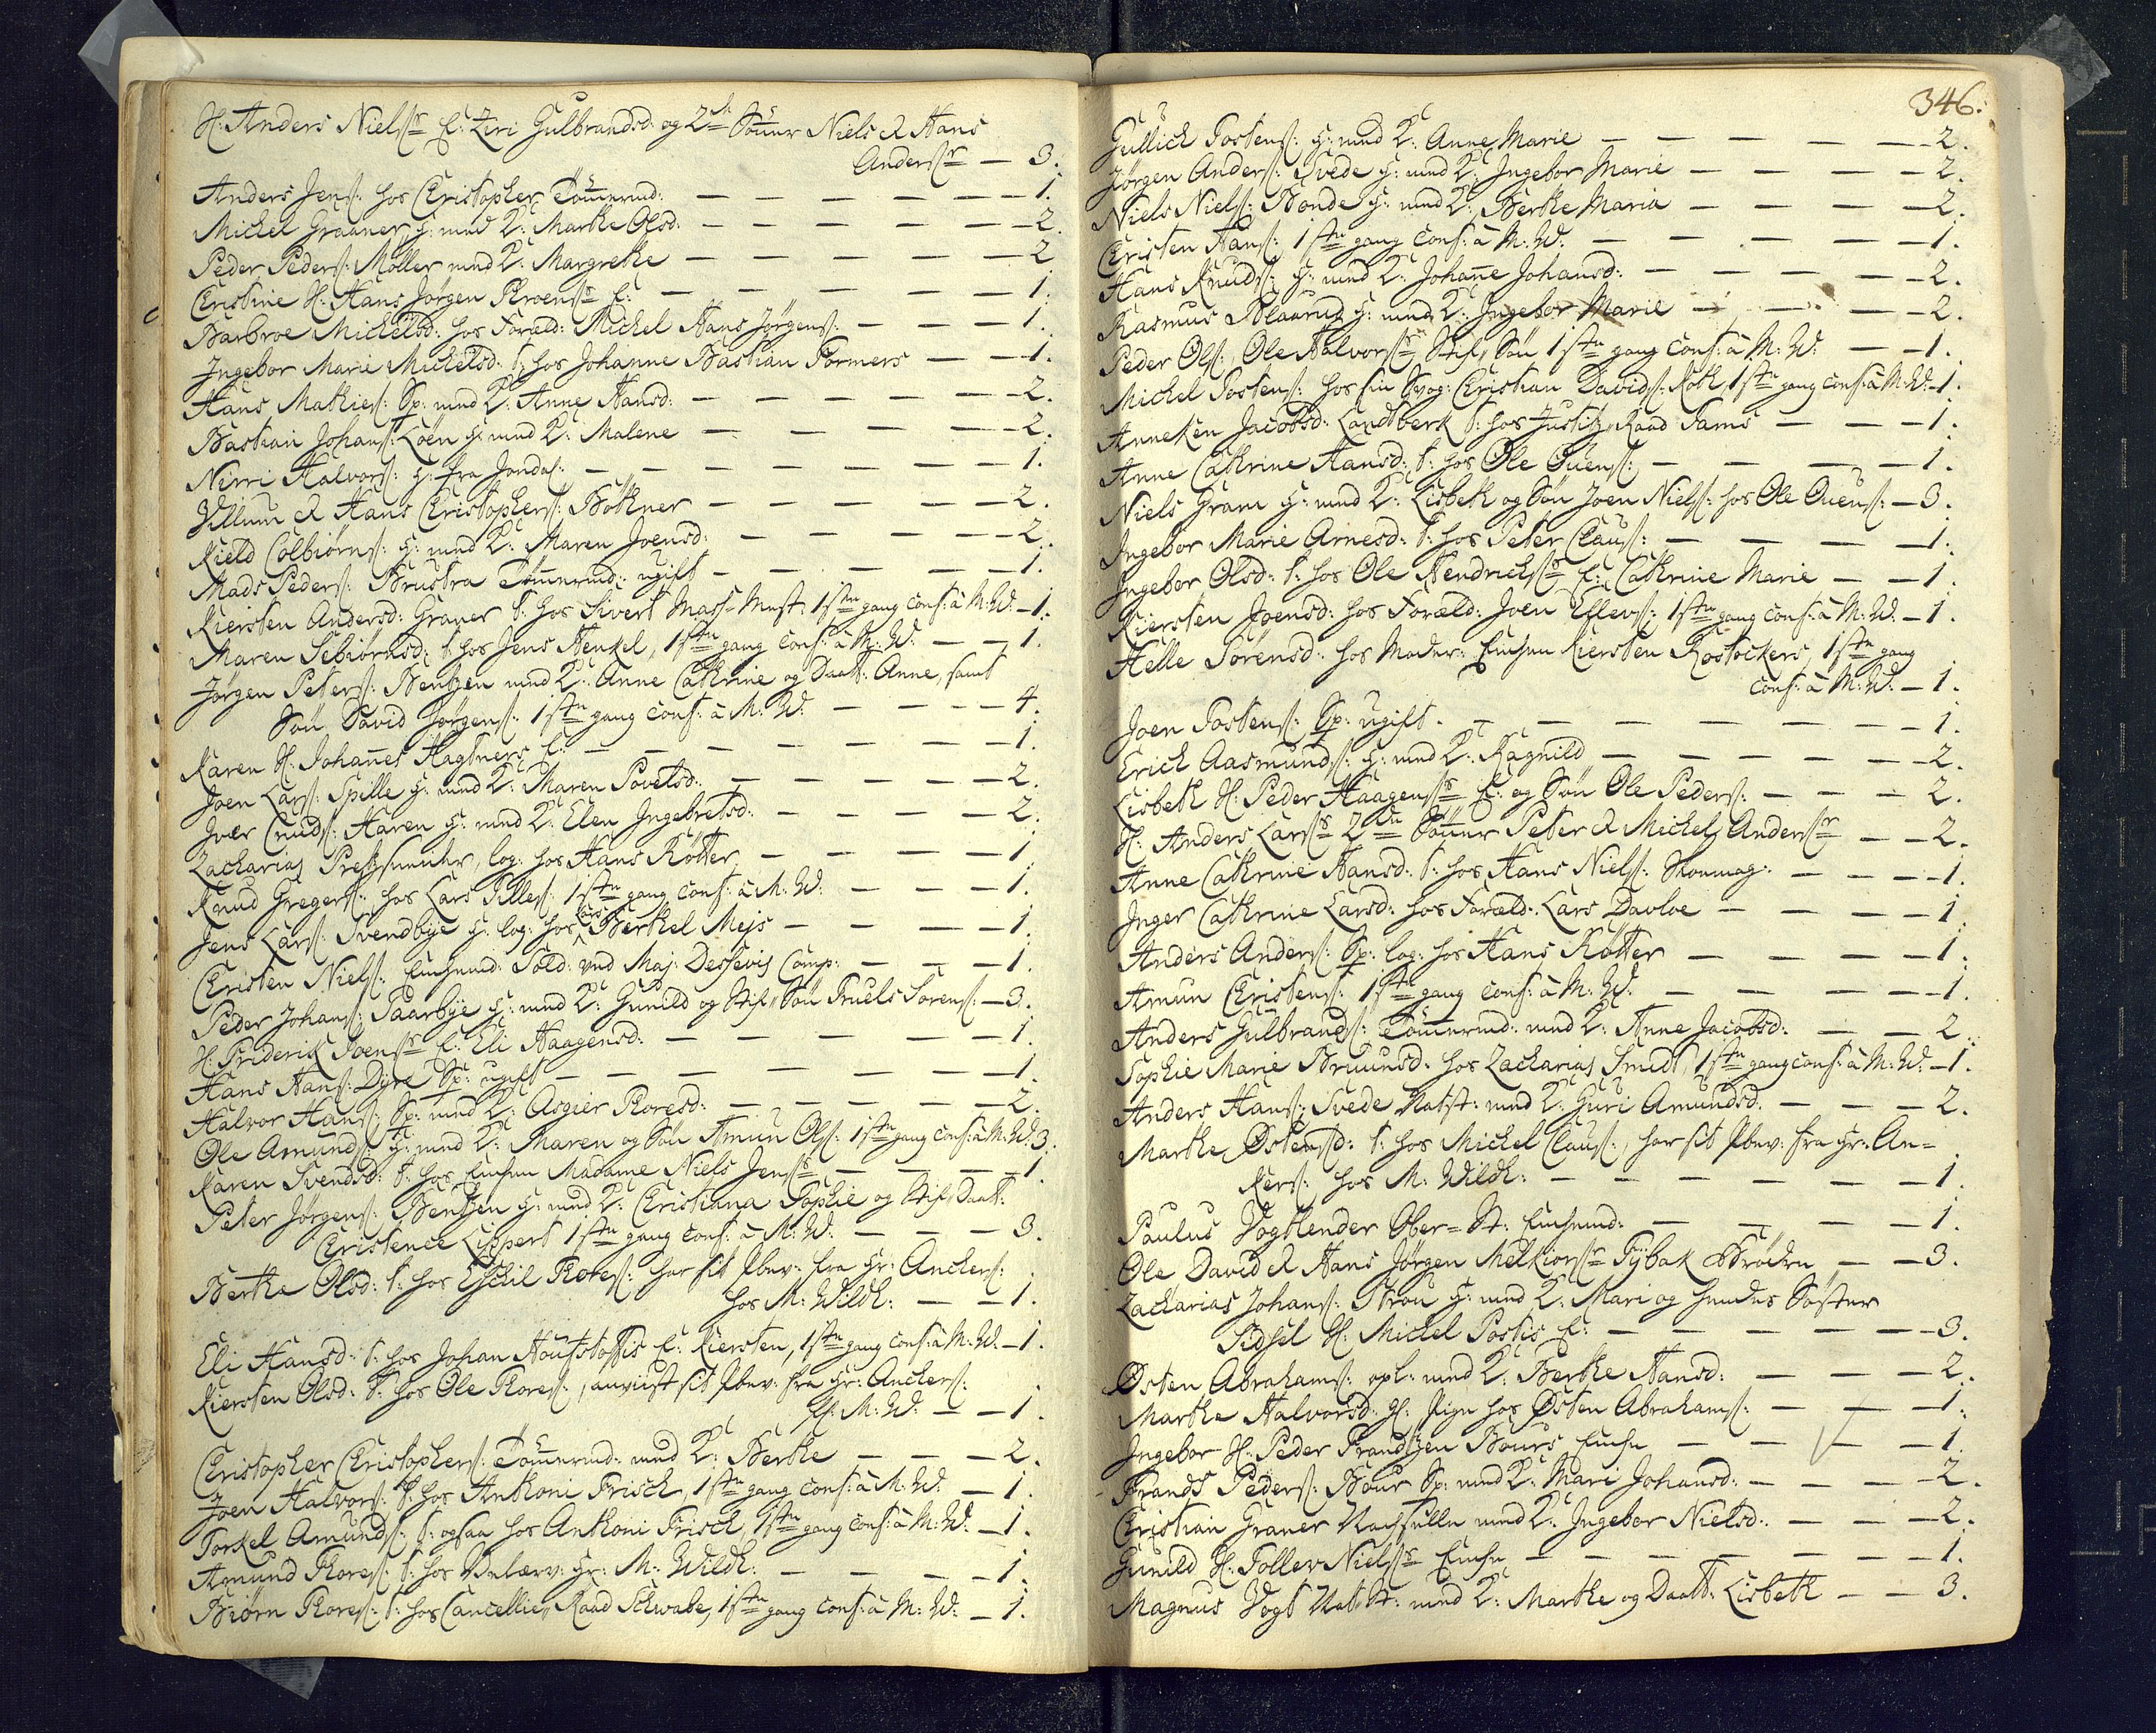 H: Anders Nielsss E: Ziri Gulbrandsd: og 2de Sönner Niels & Hans
Anderss — 3.
Anders Jens: hos Christopher Tömmermd: — 1.
Michel Graaner g: med K: Marthe Olsd: — 2.
Peder Peders: Möller med K: Margrethe — 2
Christine H: Hans Jörgen Throenss E: — 1.
Barbroe Michelsd: hos Foræld: Michel Hans Jörgens: — 1.
Ingebor Marie Michelsd: t: hos Johanne Bastian Pormers — 1.
Hans Mathies: Sp: med K: Anne Hansd: — 2.
Bastian Johans: Löen g: med K: Malene — 2.
Nirri Halvors: g: fra Jondal: — 1.
Villum & Hans Christophers: Böthner — 2.
Kield Colbiörns: g: med K: Maren Joensd: — 2.
Mads Peders: Brustra Tömmermd: ugift — 1.
Kiersten Andersd: Graner t: hos Sivert Mass-Mest. 1ste gang Conf: à M: W: — 1.
Maren Sebiörnsd: t: hos Jens Henkel, 1ste gang Conf: à M: W: — 1.
Jörgen Peters: Bentzen med K: Anne Cathrine og Daatt: Anne, samt
Sön David Jörgens: 1ste gang Conf: à M: W: — 4.
Karen H: Johannes Hagtners E: — 1.
Joen Lars: Spille g: med K: Maren Povelsd: — 2.
Iver Cnuds: Haren g: med K: Elen Ingebretsd: — 2.
Zacharias log: hos Hans Rötter — 1
Knud Gregers: hos Lars Tilles: 1ste gang Conf: à M: W: — 1.
Jens Lars: Svendbye g: log: hos Lars Berthel Mejs — 1.
Christen Niels: Sold: und Maj: Dessevis Comp: — 1.
Peder Johans: Saarbye g: med K: Gunild og Stif-Sön Truels Sörens: — 3.
H: Friderik Joenss E: Eli Haagensd: — 1.
Hans Hans: Dyre Sp: ugift — 1.
Halvor Hans: Sp: med K: Asgier Thoresd: — 2.
Ole Amunds: g: med K: Maren og Sön Amun Ols: 1ste gang Conf: à M: W: 3.
Karen Svendsd: t: hos Madame Niels Jenss — 1
Peter Jörgens: Bentzen g: med K: Christiana Sophie og Stif-Daatt:
Christence Lippert 1ste gang Conf: à M: W: — 3.
Berthe Olsd: t: hos Eschil Thores: har sit Bev: fra Hr: Anchers:
hos M: Wildh: — 1.
Eli Hansd: t: hos Johan E: Kiersten, 1ste gang Conf: à M: W: — 1.
Kiersten Olsd: t: hos Ole Thores:, anviist sit Bev: fra Hr: Anchers:
H: M: W: — 1.
Christopher Christophers: Tömmermd: med K: Berthe — 2.
Joen Halvors: t: hos Anthoni Frisch, 1ste gang Conf: à M: W: — 1.
Torkel Amunds: t: ogsaa hos Anthoni Frisch, 1ste gang Conf: à M: W: — 1.
Amund Thores: t: hos Hr: M: Wildh: — 1.
Biörn Thores: t: hos Cancellie-Raad Schwabe, 1ste gang Conf: à M: W: — 1.
346.
Gullich Tostens: g: med K: Anne Marie — 2.
Jörgen Anders: Svede g: med K: Ingebor Marie — 2.
Niels Niels: Bonde g: med K: Berthe Maria — 2.
Christen Hans: 1ste gang Conf: à M: W: — 1.
Hans Knuds: g: med K: Johane Johansd: — 2.
Rasmus g: med K: Ingebor Marie — 2.
Peder Ols: Ole Halvorss Stif-Sön 1ste gang Conf: à M: W: — 1.
Michel Tostens: hos sin Svog: Christian Davids: Roth, 1ste gang Conf: à M: W: — 1.
Anneken Jacobsd: Landtberk t: hos Justitz-Raad Tams — 1.
Anne Cathrine Hansd: t: hos Ole Ouens: — 1.
Niels Gram g: med K: Lisbeth og Sön Joen Niels: hos Ole Ouens: — 3.
Ingebor Marie Arnesd: t: hos Peter Claus: — 1.
Ingebor Olsd: t: hos Ole Hendrichss E: Cathrine Marie — 1.
Kiersten Joensd: hos Foræld: Joen Ellevs: 1ste gang Conf: à M: W: — 1.
Helle Sörensd: hos Moder: Enchen Kiersten Rostockers, 1ste gang
Conf: à M: W: — 1.
Joen Tostens: Sp: ugift. — 1.
Erich Aasmunds: g: med K: Ragnild — 2.
Lisbeth H: Peder Haagenss E: og Sön Ole Peders: — 2.
H: Anders Larss 2de Sönner Peter & Michel Anderss — 2.
Anne Cathrine Hansd: t: hos Hans Niels: Skomag: — 1.
Inger Cathrine Larsd: hos Foræld: Lars Davloe — 1.
Anders Anders: Sp: log: hos Hans Rötter — 1.
Amun Christens: 1ste gang Conf: à M: W: — 1.
Anders Gulbrands: Tömmermd: med K: Anne Jacobsd: — 2.
Sophie Marie Bruunsd: hos Zacharias Smidt, 1ste gang Conf: à M: W: — 1.
Anders Hans: Svede Natst: med K: Guri Amundsd. — 2.
Marthe Östensd: t: hos Michel Claus:, har sit Bev: fra Hr: An=
kers: hos M: Wildh: — 1.
Paulus Vogtlender Ober= — 1.
Ole David & Hans Jörgen Melkiorss Fÿbak Brödre — 3.
Zacharias Johans: g: med K: Mari og hendes Söster
Sidsel H: Michel Postis E: — 3.
Östen Abrahams: opl: med K: Berthe Hansd: — 2.
Marthe Halvorsd: gl: Pige hos Östen Abrahams: — 1.
Ingebor H: Peder Frandtzen Bours Enche — 1.
Frands Peders: Bour Sp: med K: Mari Johansd: — 2.
Christian Graner med K: Ingebor Nielsd: — 2.
Gunild H: Tollev Nielss Enche — 1.
Magnus Vogt med K: Marthe og Daatt: Lisbeth — 3.